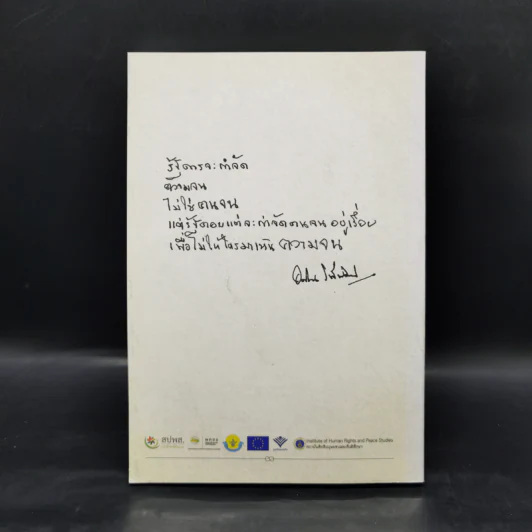 รัฐควรจะกำจัด
ความจน
ไม่ใช่คนจน
แต่รัฐคอยแต่จะกำจัดคนจนอยู่เรื่อย
เพื่อไม่ให้ใครมาเห็นความจน
สปพส.
Institute of Human Rights and Peace Studies
สถาบันสิทธิมนุษยชนและสันติศึกษา